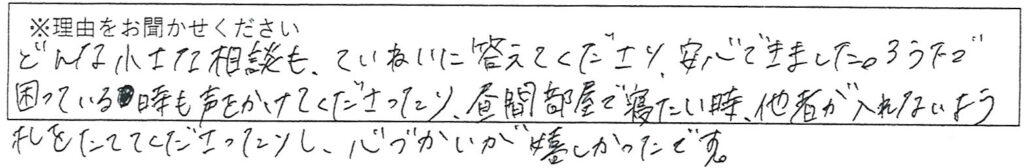 ※理由をお聞かせください
どんな小さな相談も、ていねいに答えてくださり、安心できました。ろうかで
困っている時も声をかけてくださったり、昼間部屋で寝たい時、他者が入れないよう
札をたててくださったりし、心づかいが嬉しかったです。